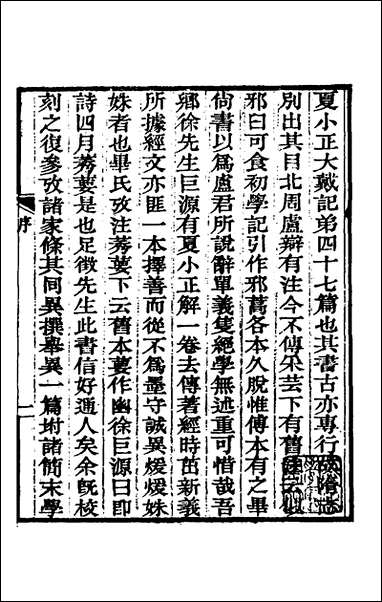 夏小正大戴記第四十七篇也其書古亦專行故隋志
別出其目北周盧辯有注今不傳采芸下有舊注云似
邪曰可食初學記引作邪蒿各本久脫惟傅本有之畢
尙書以爲盧君所說辭單義隻絕學無述重可惜哉吾
鄉徐先生巨源有夏小正解一卷去傳著經時茁新義
所據經文亦匪一本擇善而從不爲墨守誠異煖煖姝
姝者也畢氏攷注莠葽下云舊本葽作幽徐巨源曰卽
詩四月莠葽是也足徵先生此書信好通人矣余旣校
刻之復參攷諸家條其同異撰舉異一篇坿諸簡末學
序